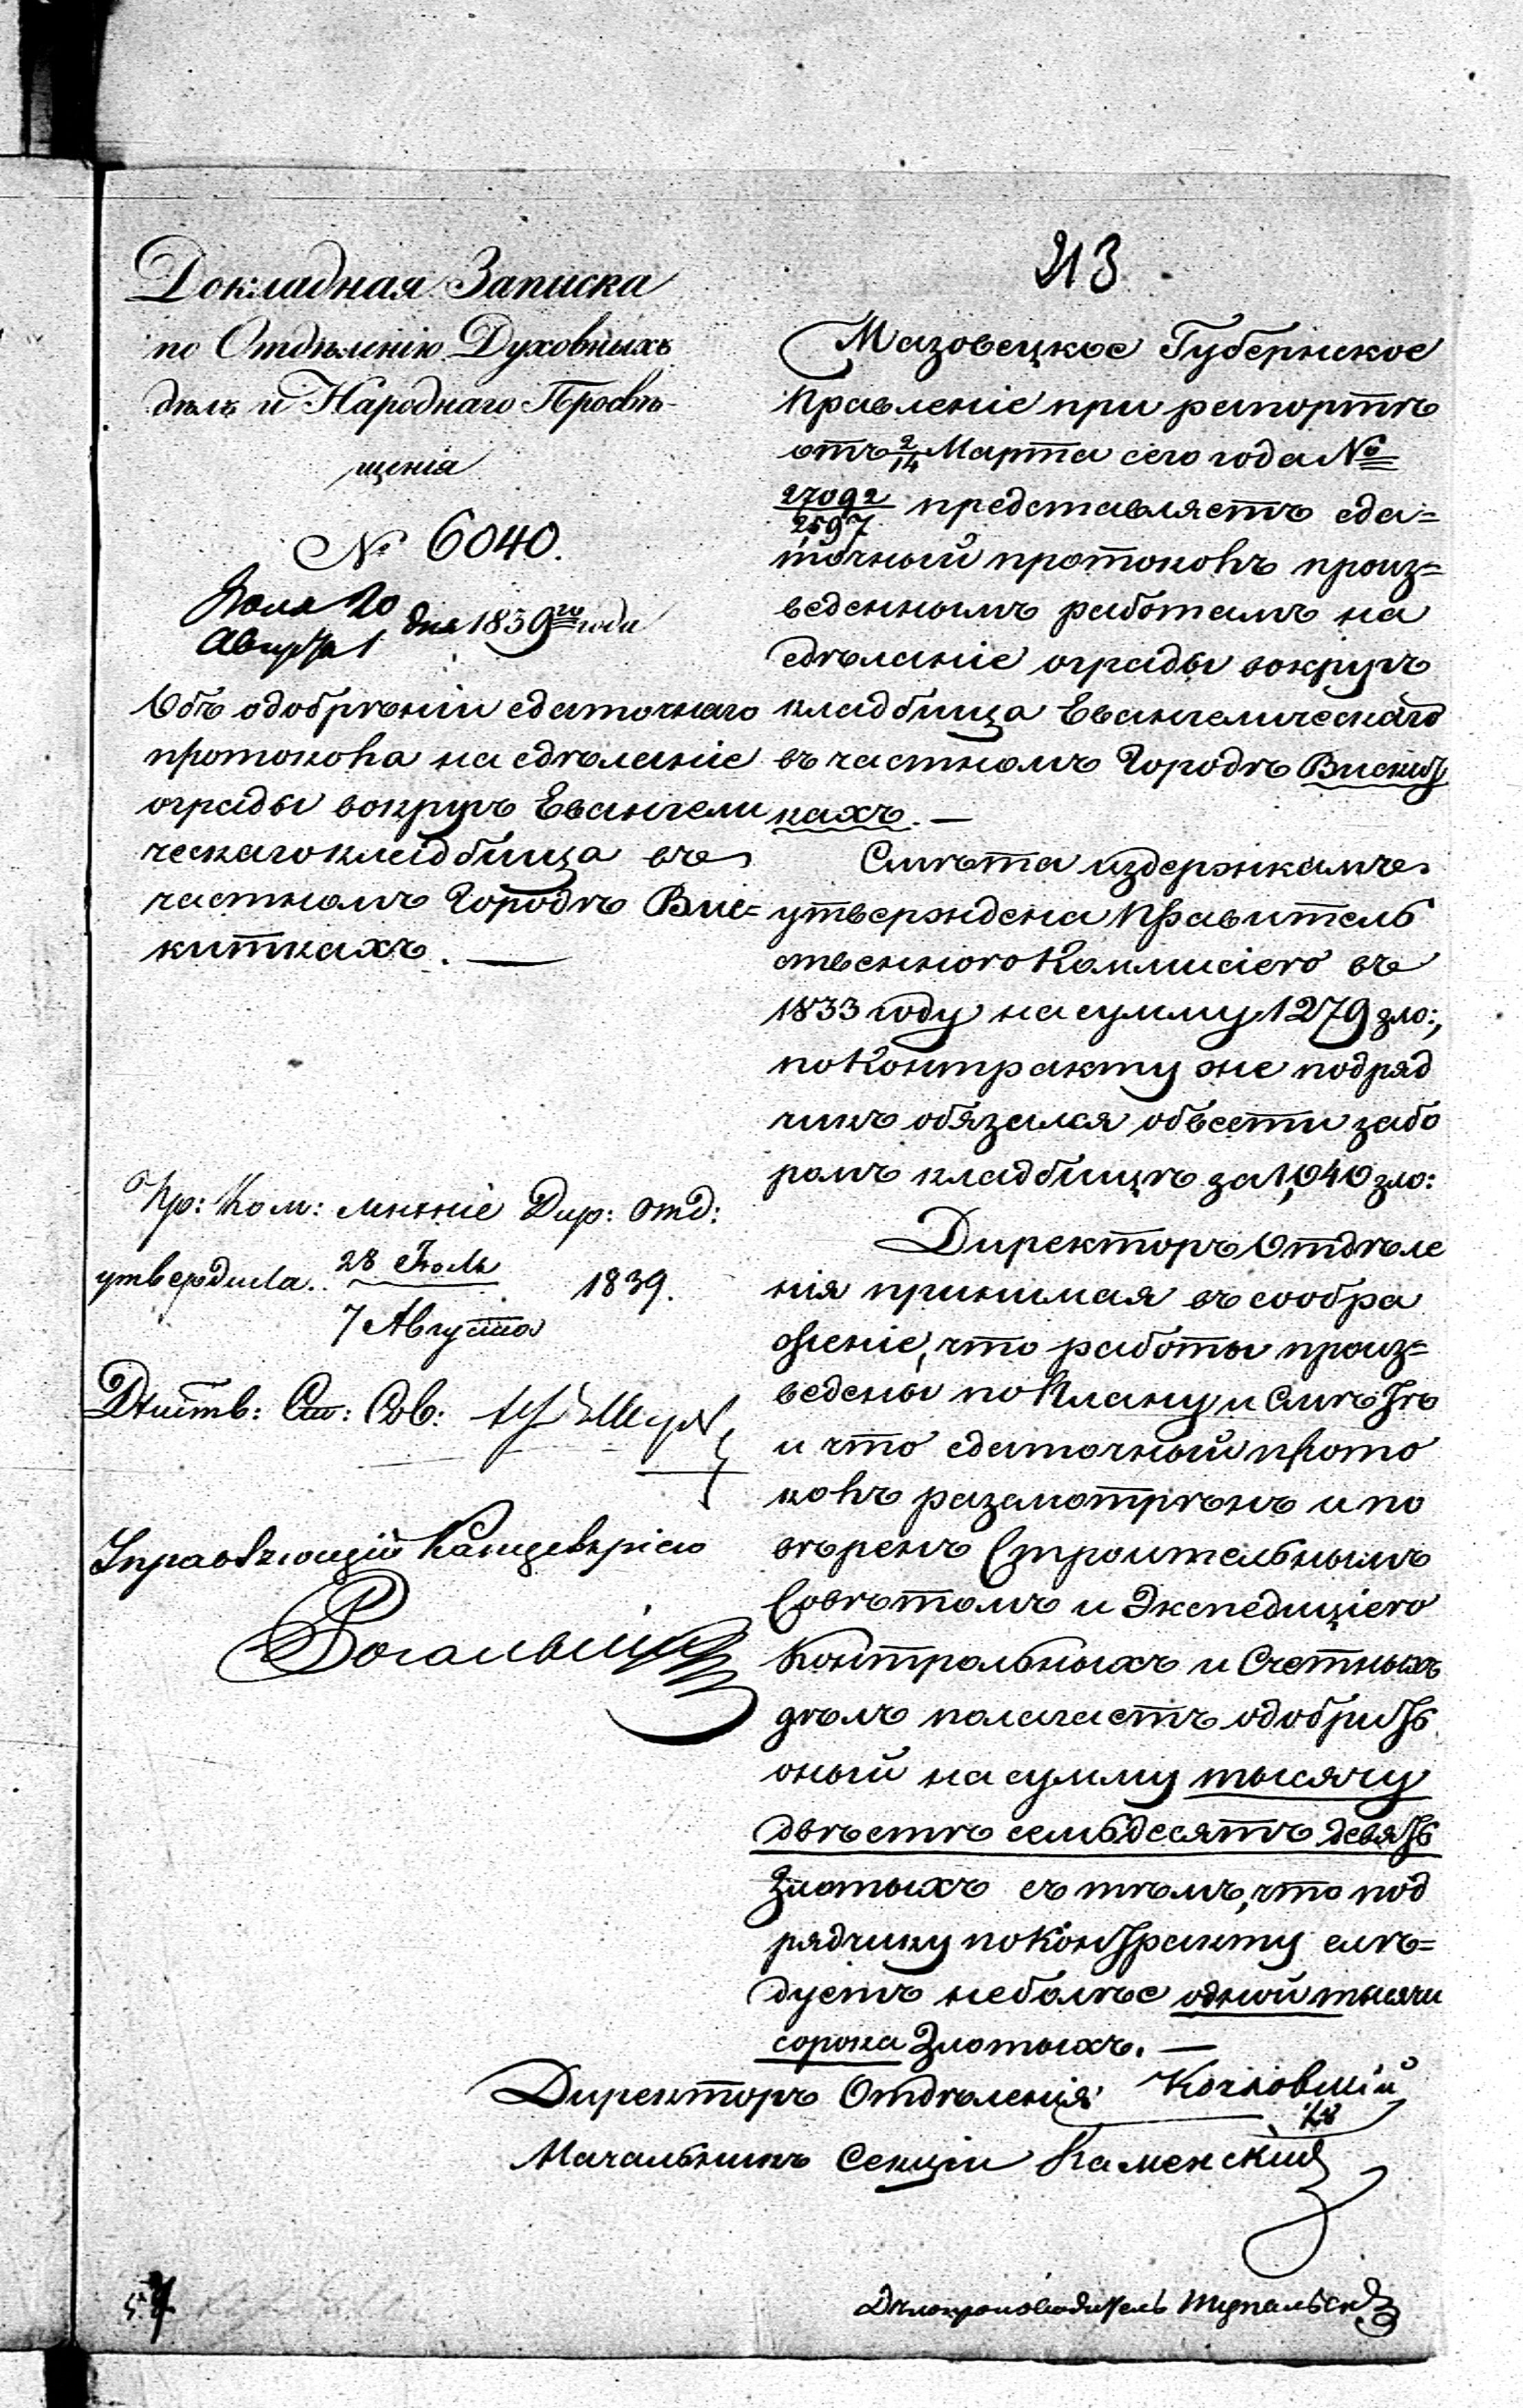 Докладная Записка
по Отдѣленію Духовныхъ
дѣлъ и Народнаго Просвѣ-
щенія
№ 6040.
Іюля 20
Августа 1 дня 1839го года
Объ одобреніи сдаточнаго
протокола на сдѣланіе
ограды вокругъ Евангели
ческаго кладбища въ
частномъ Городѣ Вис=
киткахъ. —
Пр: Ком: мнѣніе Дир: Отд:
утвердила. 28 Іюль 1839.
7 Августа
Дѣйств: Ст: Сов:
Управляющій Канцеляріею
213
Мазовецкое Губернское
Правленіе при рапортѣ
отъ 2/14 Марта сего года №
27092/2597 представляетъ сда=
точный протоколъ произ=
веденнымъ работамъ на
сдѣланіе ограды вокругъ
кладбища Евангелическаго
въ частномъ Городѣ Вискит
кахъ. —
Смѣта издержкамъ
утверждена Правитель
ственною Коммисіею въ
1833 году на сумму 1279 зло:,
по Контракту же подряд
чикъ обязался обвести забо
ромъ кладбище за 1,040 зло:
Директоръ Отдѣле
нія принимая въ сообра
женіе, что работы произ=
ведены по Плану и Смѣтѣ
и что сдаточный прото
колъ разсмотрѣнъ и по
вѣренъ Строительнымъ
Совѣтомъ и Экспедиціею
Контрольныхъ и Счетныхъ
дѣлъ полагаетъ одобрить
оный на сумму тысячу
двѣстѣ семьдесятъ девять
Злотыхъ съ тѣмъ, что под
рядчику по Контракту слѣ=
дуетъ неболѣе одной тысячи
сорока Злотыхъ. —
Директоръ Отдѣленія
Начальникъ Секціи Каменскій
Дѣлопроизводитель